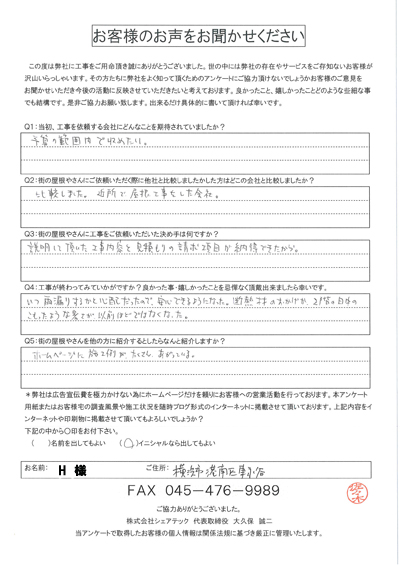 お客様のお声をお聞かせください
この度は弊社に工事をご用命頂き誠にありがとうございました。世の中には弊社の存在やサービスをご存知ないお客様が
沢山いらっしゃいます。その方たちに弊社をよく知って頂くためのアンケートにご協力頂けないでしょうかお客様のご意見を
お聞かせいただき今後の活動に反映させていただきたいと考えております。良かったこと、嬉しかったことどのような些細な事
でも結構です。是非ご協力お願い致します。出来るだけ具体的に書いて頂ければ幸いです。
Q1:当初、工事を依頼する会社にどんなことを期待されていましたか?
予算の範囲内で収めたい。
Q2:街の屋根やさんにご依頼いただく際に他社と比較しましたかした方はどこの会社と比較しましたか?
比較しました。近所で屋根工事をした会社。
Q3:街の屋根やさんに工事をご依頼いただいた決め手は何ですか?
説明して頂いた工事内容と見積もりの請求項目が納得できたから。
Q4:工事が終わってみていかがですか?良かった事・嬉しかったことを忌憚なく頂戴出来ましたら幸いです。
いつ雨漏りするかと心配だったので、安心できるようになった。断熱材のおかげか、2階の
こもったような暑さが以前ほどではなくなった。
Q5:街の屋根やさんを他の方に紹介するとしたらなんと紹介しますか?
ホームページに施工例がたくさんあがっている。
*弊社は広告宣伝費を極力かけない為にホームページだけを頼りにお客様への営業活動を行っております。本アンケート
用紙またはお客様宅の調査風景や施工状況を随時ブログ形式のインターネットに掲載させて頂いております。上記内容をイ
ンターネットや印刷物に掲載させて頂いてもよろしいでしょうか?
下記の中から〇印をお付下さい。
( )名前を出してもよい (○)イニシャルなら出してもよい
お名前: H 様 ご住所: 横浜市港南区東永谷
FAX 045-476-9989
ご協力ありがとうございました。
株式会社シェアテック 代表取締役 大久保 誠二
当アンケートで取得したお客様の個人情報は関係法規に基づき厳正に管理いたします。